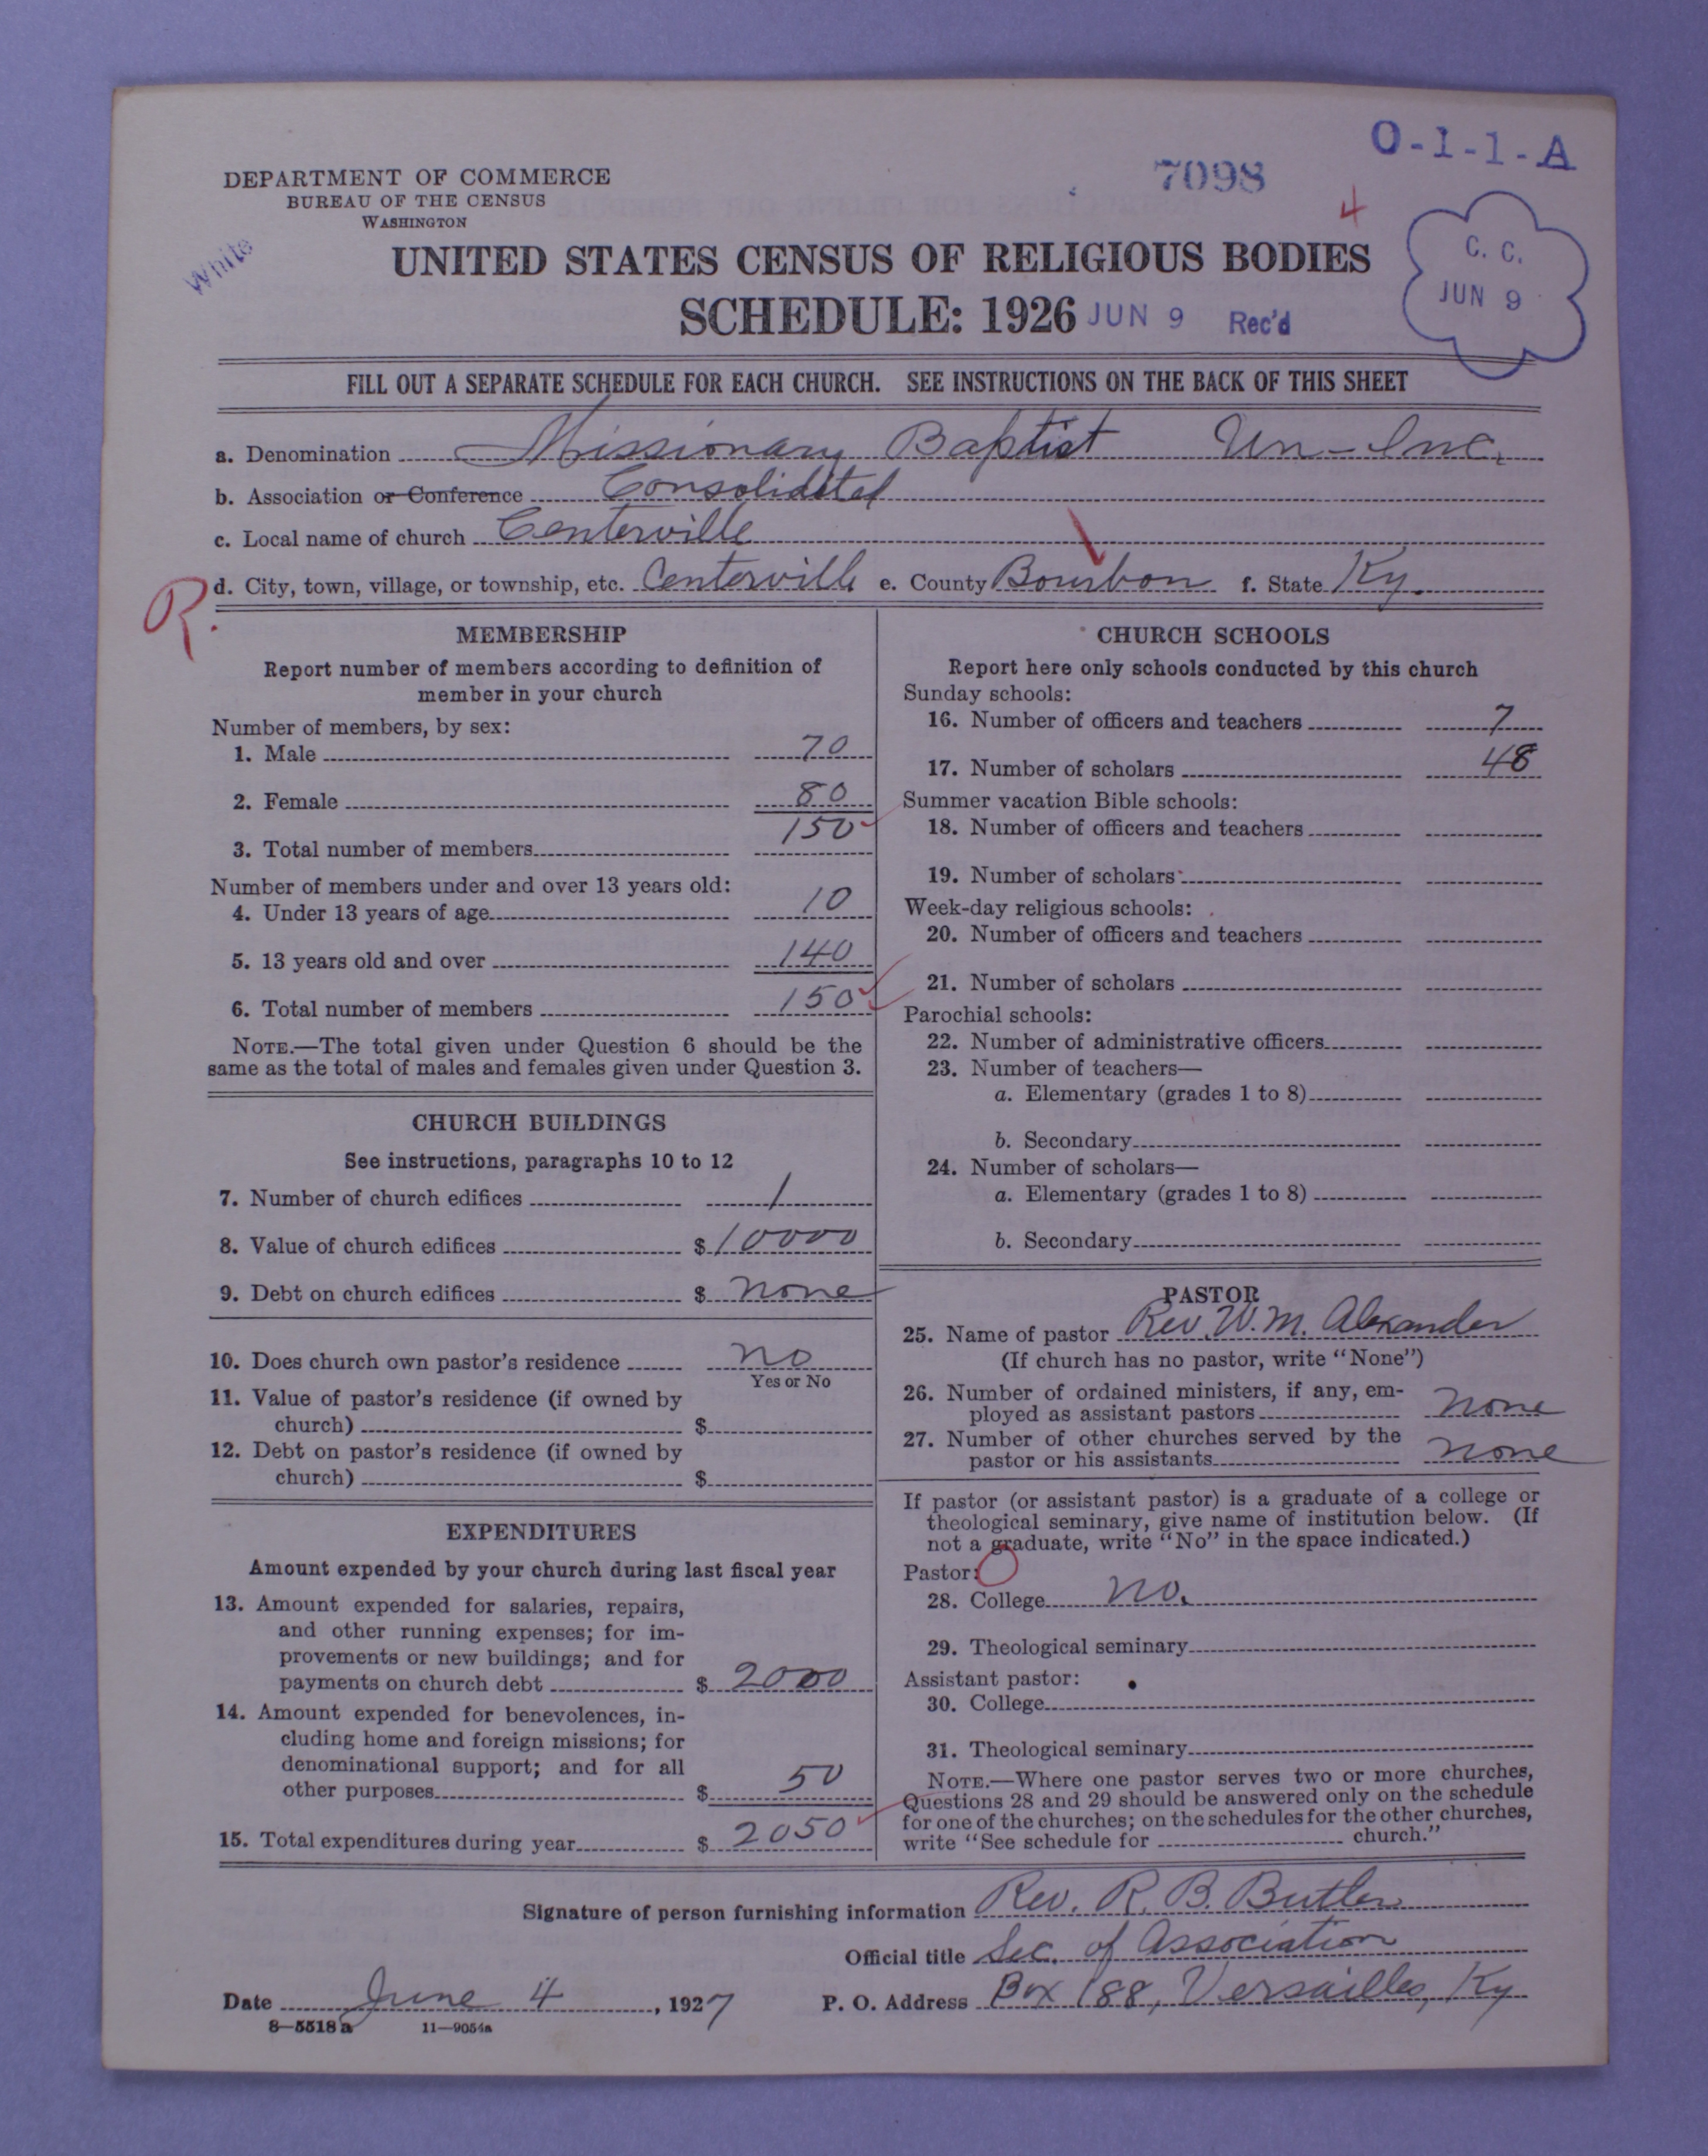 O-1-1-A
7098
4
DEPARTMENT OF COMMERCE
BUREAU OF THE CENSUS
WASHINGTON
White
C. C.
JUN 9
UNITED STATES CENSUS OF RELIGIOUS BODIES
SCHEDULE: 1926 JUN 9 Rec'd
FILL OUT A SEPARATE SCHEDULE FOR EACH CHURCH. SEE INSTRUCTIONS ON THE BACK OF THIS SHEET
a. Denomination Missionary Baptist Un-Inc.
b. Association or Conference Consolidated
c. Local name of church Centerville
d. City, town, village, or township, etc. Centerville e. County Bourbon f. State Ky.
R.
MEMBERSHIP
Report number of members according to definition of
member in your church
Number of members, by sex:
1. Male 70
2. Female 80
3. Total number of members 150
Number of members under and over 13 years old:
4. Under 13 years of age 10
5. 13 years old and over 140
6. Total number of members 150
NOTE.—The total given under Question 6 should be the
same as the total of males and females given under Question 3.
CHURCH BUILDINGS
See instructions, paragraphs 10 to 12
7. Number of church edifices 1
8. Value of church edifices $ 10000
9. Debt on church edifices $ none
10. Does church own pastor's residence no
Yes or No
11. Value of pastor's residence (if owned by
church) $
12. Debt on pastor's residence (if owned by
church) $
EXPENDITURES
Amount expended by your church during last fiscal year
13. Amount expended for salaries, repairs,
and other running expenses; for im-
provements or new buildings; and for
payments on church debt $ 2000
14. Amount expended for benevolences, in-
cluding home and foreign missions; for
denominational support; and for all
other purposes $ 50
15. Total expenditures during year $ 2050
CHURCH SCHOOLS
Report here only schools conducted by this church
Sunday schools:
16. Number of officers and teachers 7
17. Number of scholars 48
Summer vacation Bible schools:
18. Number of officers and teachers
19. Number of scholars
Week-day religious schools:
20. Number of officers and teachers
21. Number of scholars
Parochial schools:
22. Number of administrative officers
23. Number of teachers—
a. Elementary (grades 1 to 8)
b. Secondary
24. Number of scholars—
a. Elementary (grades 1 to 8)
b. Secondary
PASTOR
25. Name of pastor Rev. W. M. Alexander
(If church has no pastor, write "None")
26. Number of ordained ministers, if any, em-
ployed as assistant pastors none
27. Number of other churches served by the
pastor or his assistants none
If pastor (or assistant pastor) is a graduate of a college or
theological seminary, give name of institution below. (If
not a graduate, write "No" in the space indicated.)
Pastor:
28. College no.
29. Theological seminary
Assistant pastor:
30. College
31. Theological seminary
NOTE.—Where one pastor serves two or more churches,
Questions 28 and 29 should be answered only on the schedule
for one of the churches; on the schedules for the other churches,
write "See schedule for church."
Signature of person furnishing information Rev. R. B. Butler
Official title Sec. of Association
Date June 4, 1927 P. O. Address Box 188, Versailles, Ky
8—5518 a 11—9054a